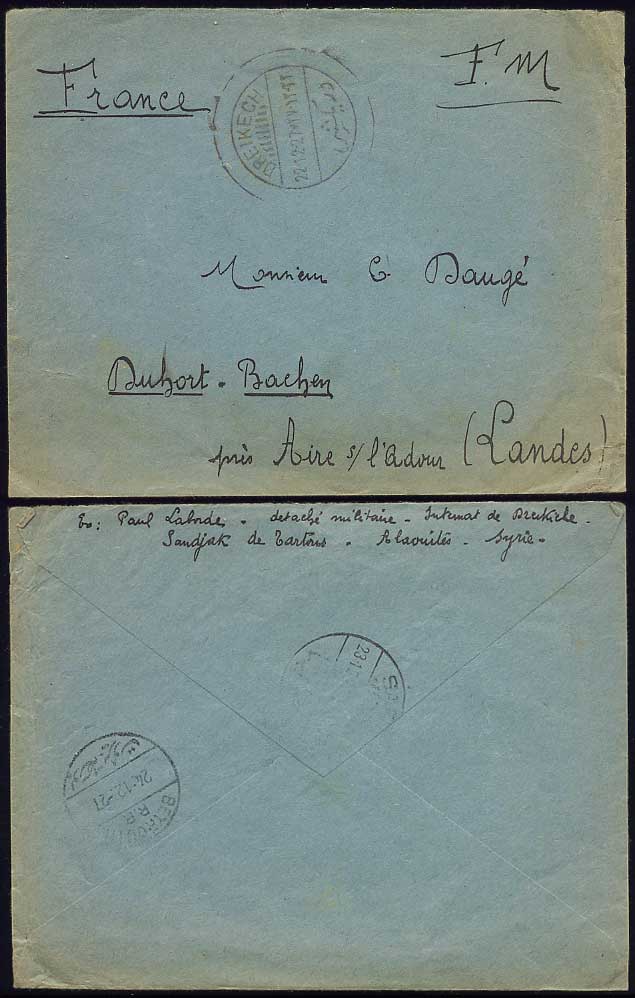 France
F. M
DREIKECH
22-12-27
Monsieur C. Daugé
Duhort - Bachen
près Aire s/ l'Adour (Landes)
Ex: Paul Laborde - detaché militaire - Internat de Dreikiche -
Sandjak de Tartous - Alaouites - Syrie -
23-1
BEYROUTH
R.P.
24-12-27